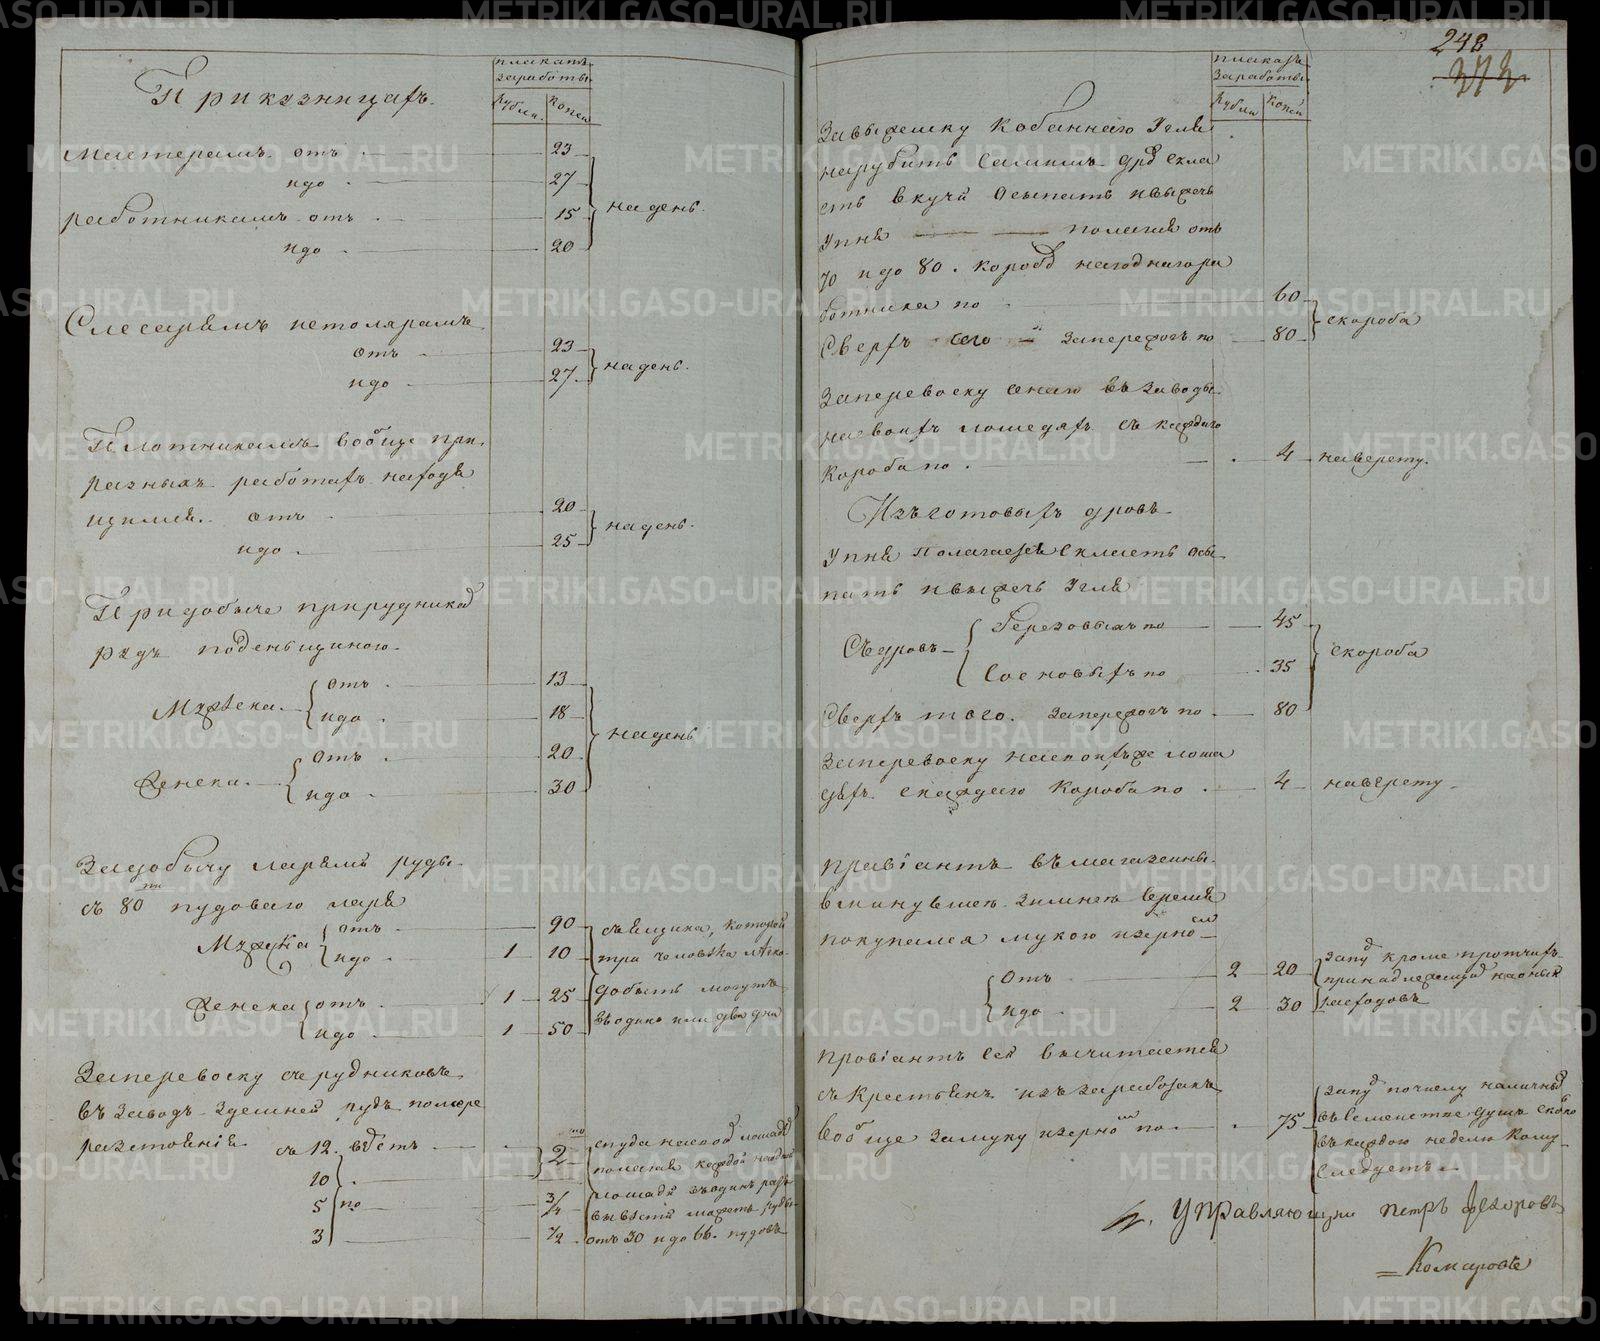 При кузницахъ.
плакатъ
заработы
Рубли.
Копеи
Мастерамъ отъ 23
идо 27
работникамъ отъ 15
идо 20
надень.
Слесарямъ истолярамъ
отъ 23
идо 27
надень.
Плотникамъ вообще при
разныхъ работахъ находя
щимся. отъ 20
идо 25
надень.
Придобыче прирудника
рудъ поденьщиною
Мужеска. отъ 13
идо 18
Женска. отъ 20
идо 30
надень
Задобычу ларямъ руды
съ 80 ти пудоваго ларя
Мужеска отъ 90
идо 1 10
Женска отъ 1 25
идо 1 50
съящика, которой
три человека
добыть могутъ
въодинъ или два дня
Заперевоску срудниковъ
въ заводъ здешней рудъ помере
разстоянія съ 12. верстъ 2
10
5 по 3/4
3 1/2
спуда насвоей лошаде
полагая каждой
лошади въодинъ разъ
вывести можетъ руды
отъ 30 идо 66. пудовъ
248
372
плакатъ
заработы
Рубли
Копеи
Завыжешку Кабаннаго Угля
нарубить Самимъ дрв скла
сть вкучи Осыпать ивыжечь
Упня полагая отъ
70 идо 80. коробъ наоднагора
ботника по 60
Сверхъ сего Запережогъ по 80
скороба
Заперевоску онаго въ Заводы
насвоихъ лошедяхъ съ каждаго
Короба по 4 наверсту.
Изъготовыхъ дровъ
Упня Полагается Скласть Осы
пать ивыжечь Угля
Съдровъ Березовыхъ по 45
Сосновыхъ по 35
скороба
Сверхъ того. Запережогъ по 80
Заперевоску насвоихъже лоша
дяхъ скаждаго Короба по 4 наверсту
Правіантъ въмагазеины
вминувшее Зимнее время
покупался мукою изерномъ
Отъ 2 20
идо 2 30
запуд кроме протчихъ
принадлежащихъ наоный
расходовъ
Провіантъ Сей высчитается
съКрестьянъ изъ Заработокъ
вообще Замуку изерном по 75
запуд почислу наличныхъ
въсемействе душъ сколко
въкаждою неделю Кому
Следуетъ
Управляющий Петръ Федоровъ
Комаровъ
METRIKI.GASO-URAL.RU